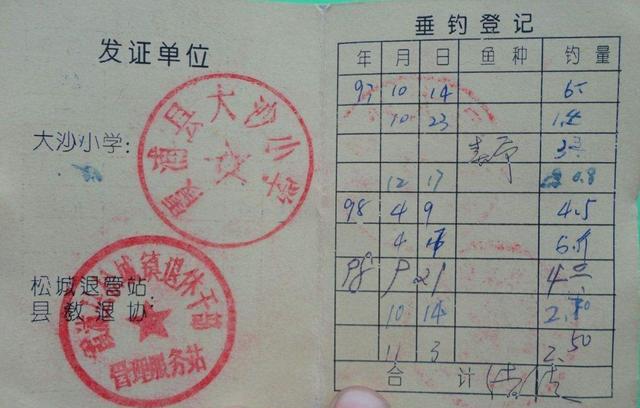 发证单位
大沙小学：
霞浦县大沙小学
松城退管站
县教退协：
霞浦县松城镇退休干部
管理服务站
垂钓登记
年 月 日 鱼种 钓量
97 10 14
10 23 1.4
12 17 0.8
98 4 9 4.5
4
98 9 21
10 14
11 3 2.50
合计